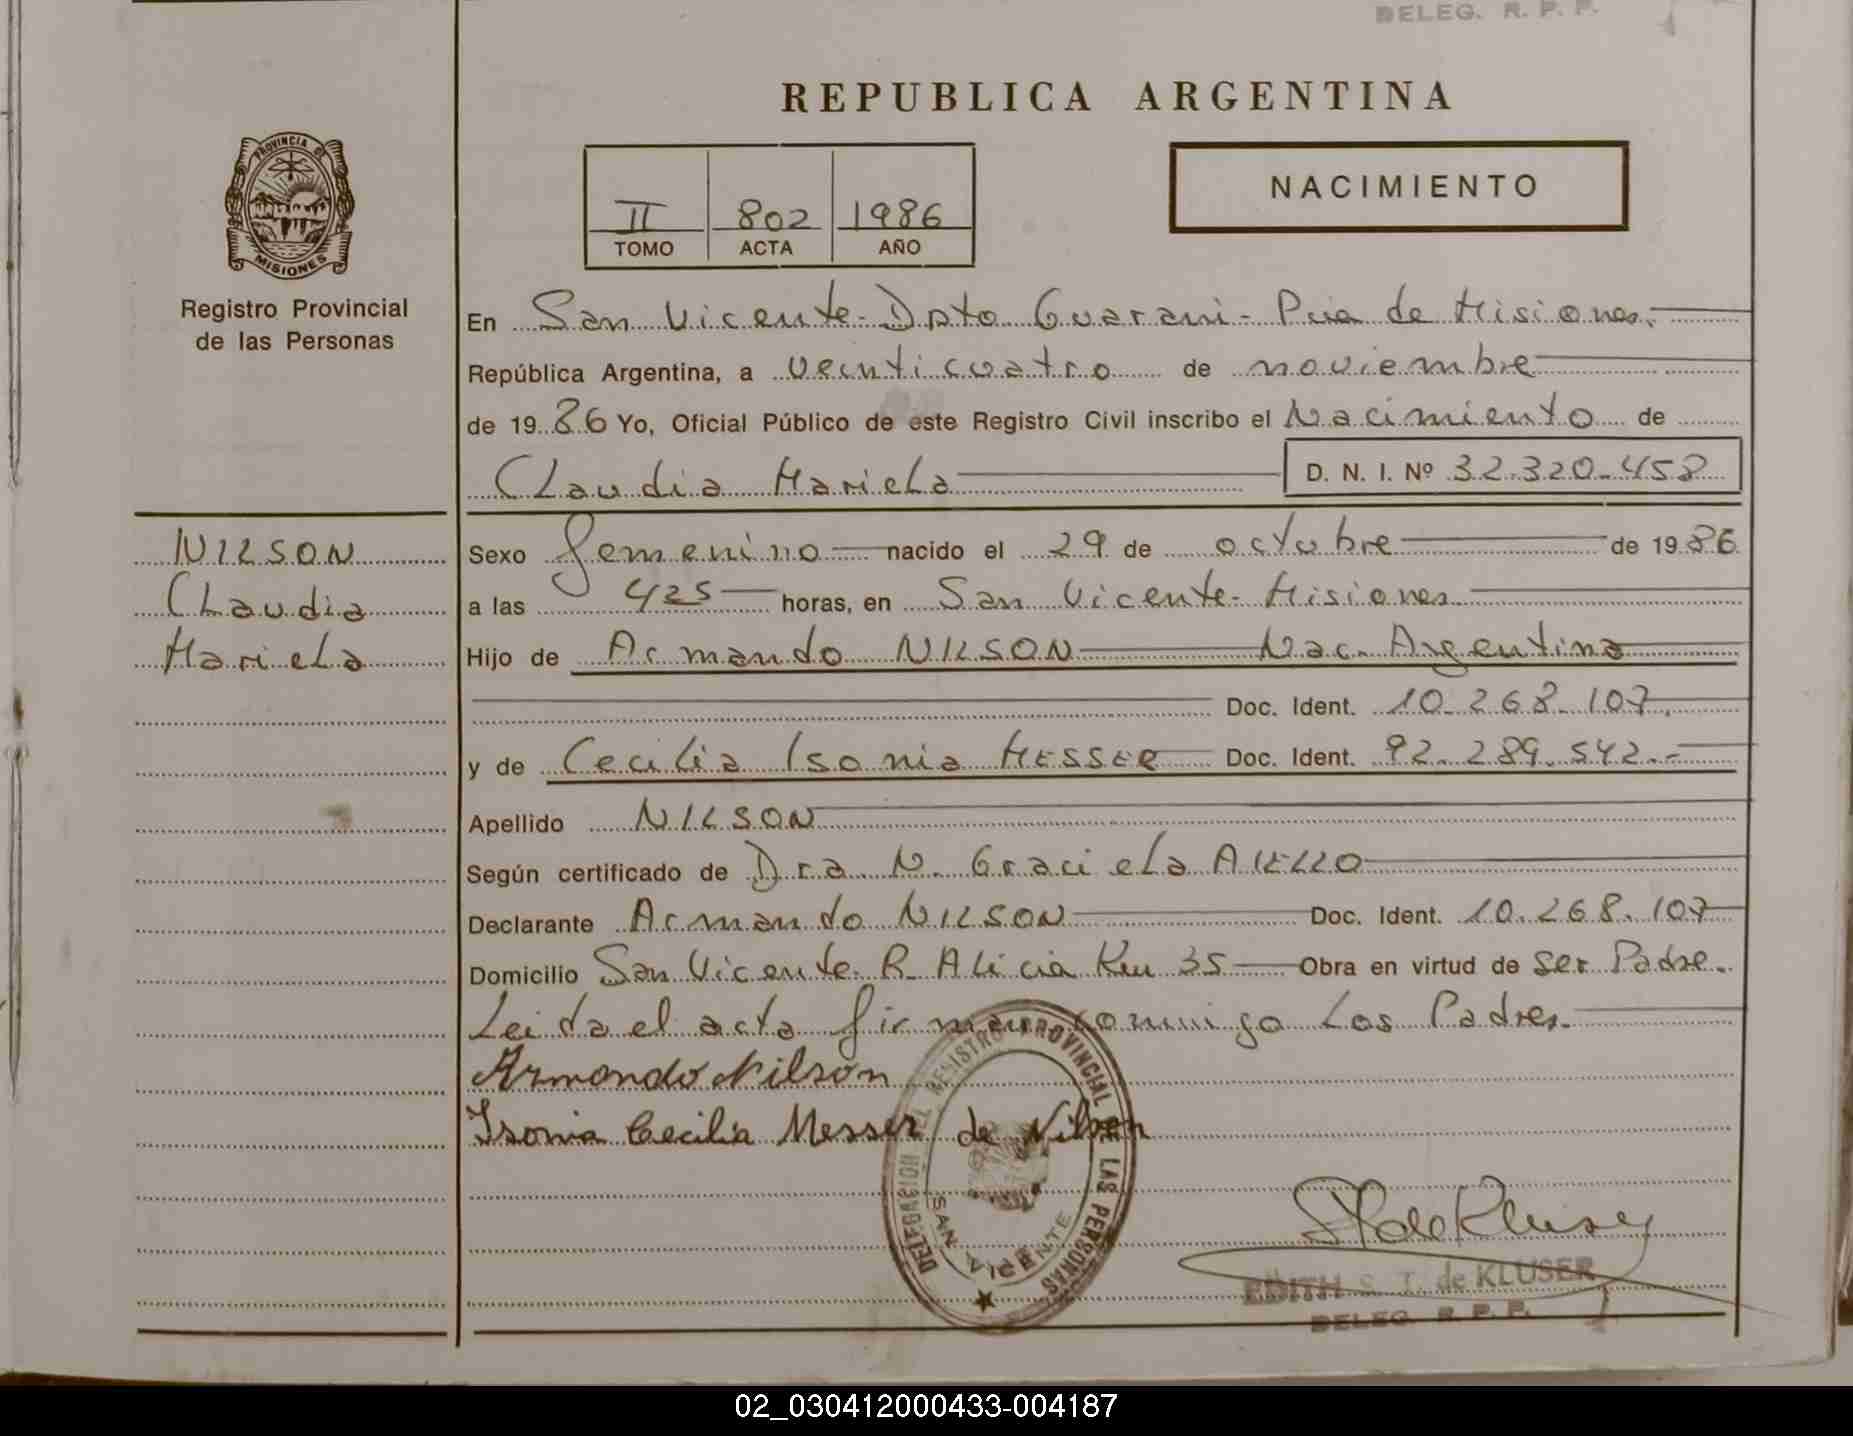 DELEG. R. P. P.
REPUBLICA ARGENTINA
PROVINCIA DE
MISIONES
Registro Provincial
de las Personas
II 802 1986
TOMO ACTA AÑO
NACIMIENTO
En San Vicente - Dpto Guarani - Pcia de Misiones.
República Argentina, a veinticuatro de noviembre
de 1986 Yo, Oficial Público de este Registro Civil inscribo el Nacimiento de
Claudia Mariela D. N. I. Nº 32.320.458
NILSON
Claudia
Mariela
Sexo femenino nacido el 29 de octubre de 1986
a las 425 horas, en San Vicente - Misiones
Hijo de Armando NILSON Nac. Argentina
Doc. Ident. 10.268.107.
y de Cecilia Isonia MESSER Doc. Ident. 92.289.542.-
Apellido NILSON
Según certificado de Dra N. Graciela AIELLO
Declarante Armando NILSON Doc. Ident. 10.268.107
Domicilio San Vicente R. Alicia Km 35 Obra en virtud de ser Padre.
Leida el acta firman conmigo los Padres.
Armando Nilson
Isonia Cecilia Messer de Nilson
DELEGACION DEL REGISTRO PROVINCIAL DE LAS PERSONAS
SAN VICENTE
EDITH S. T. de KLUSER
DELEG. R. P. P.
02_030412000433-004187